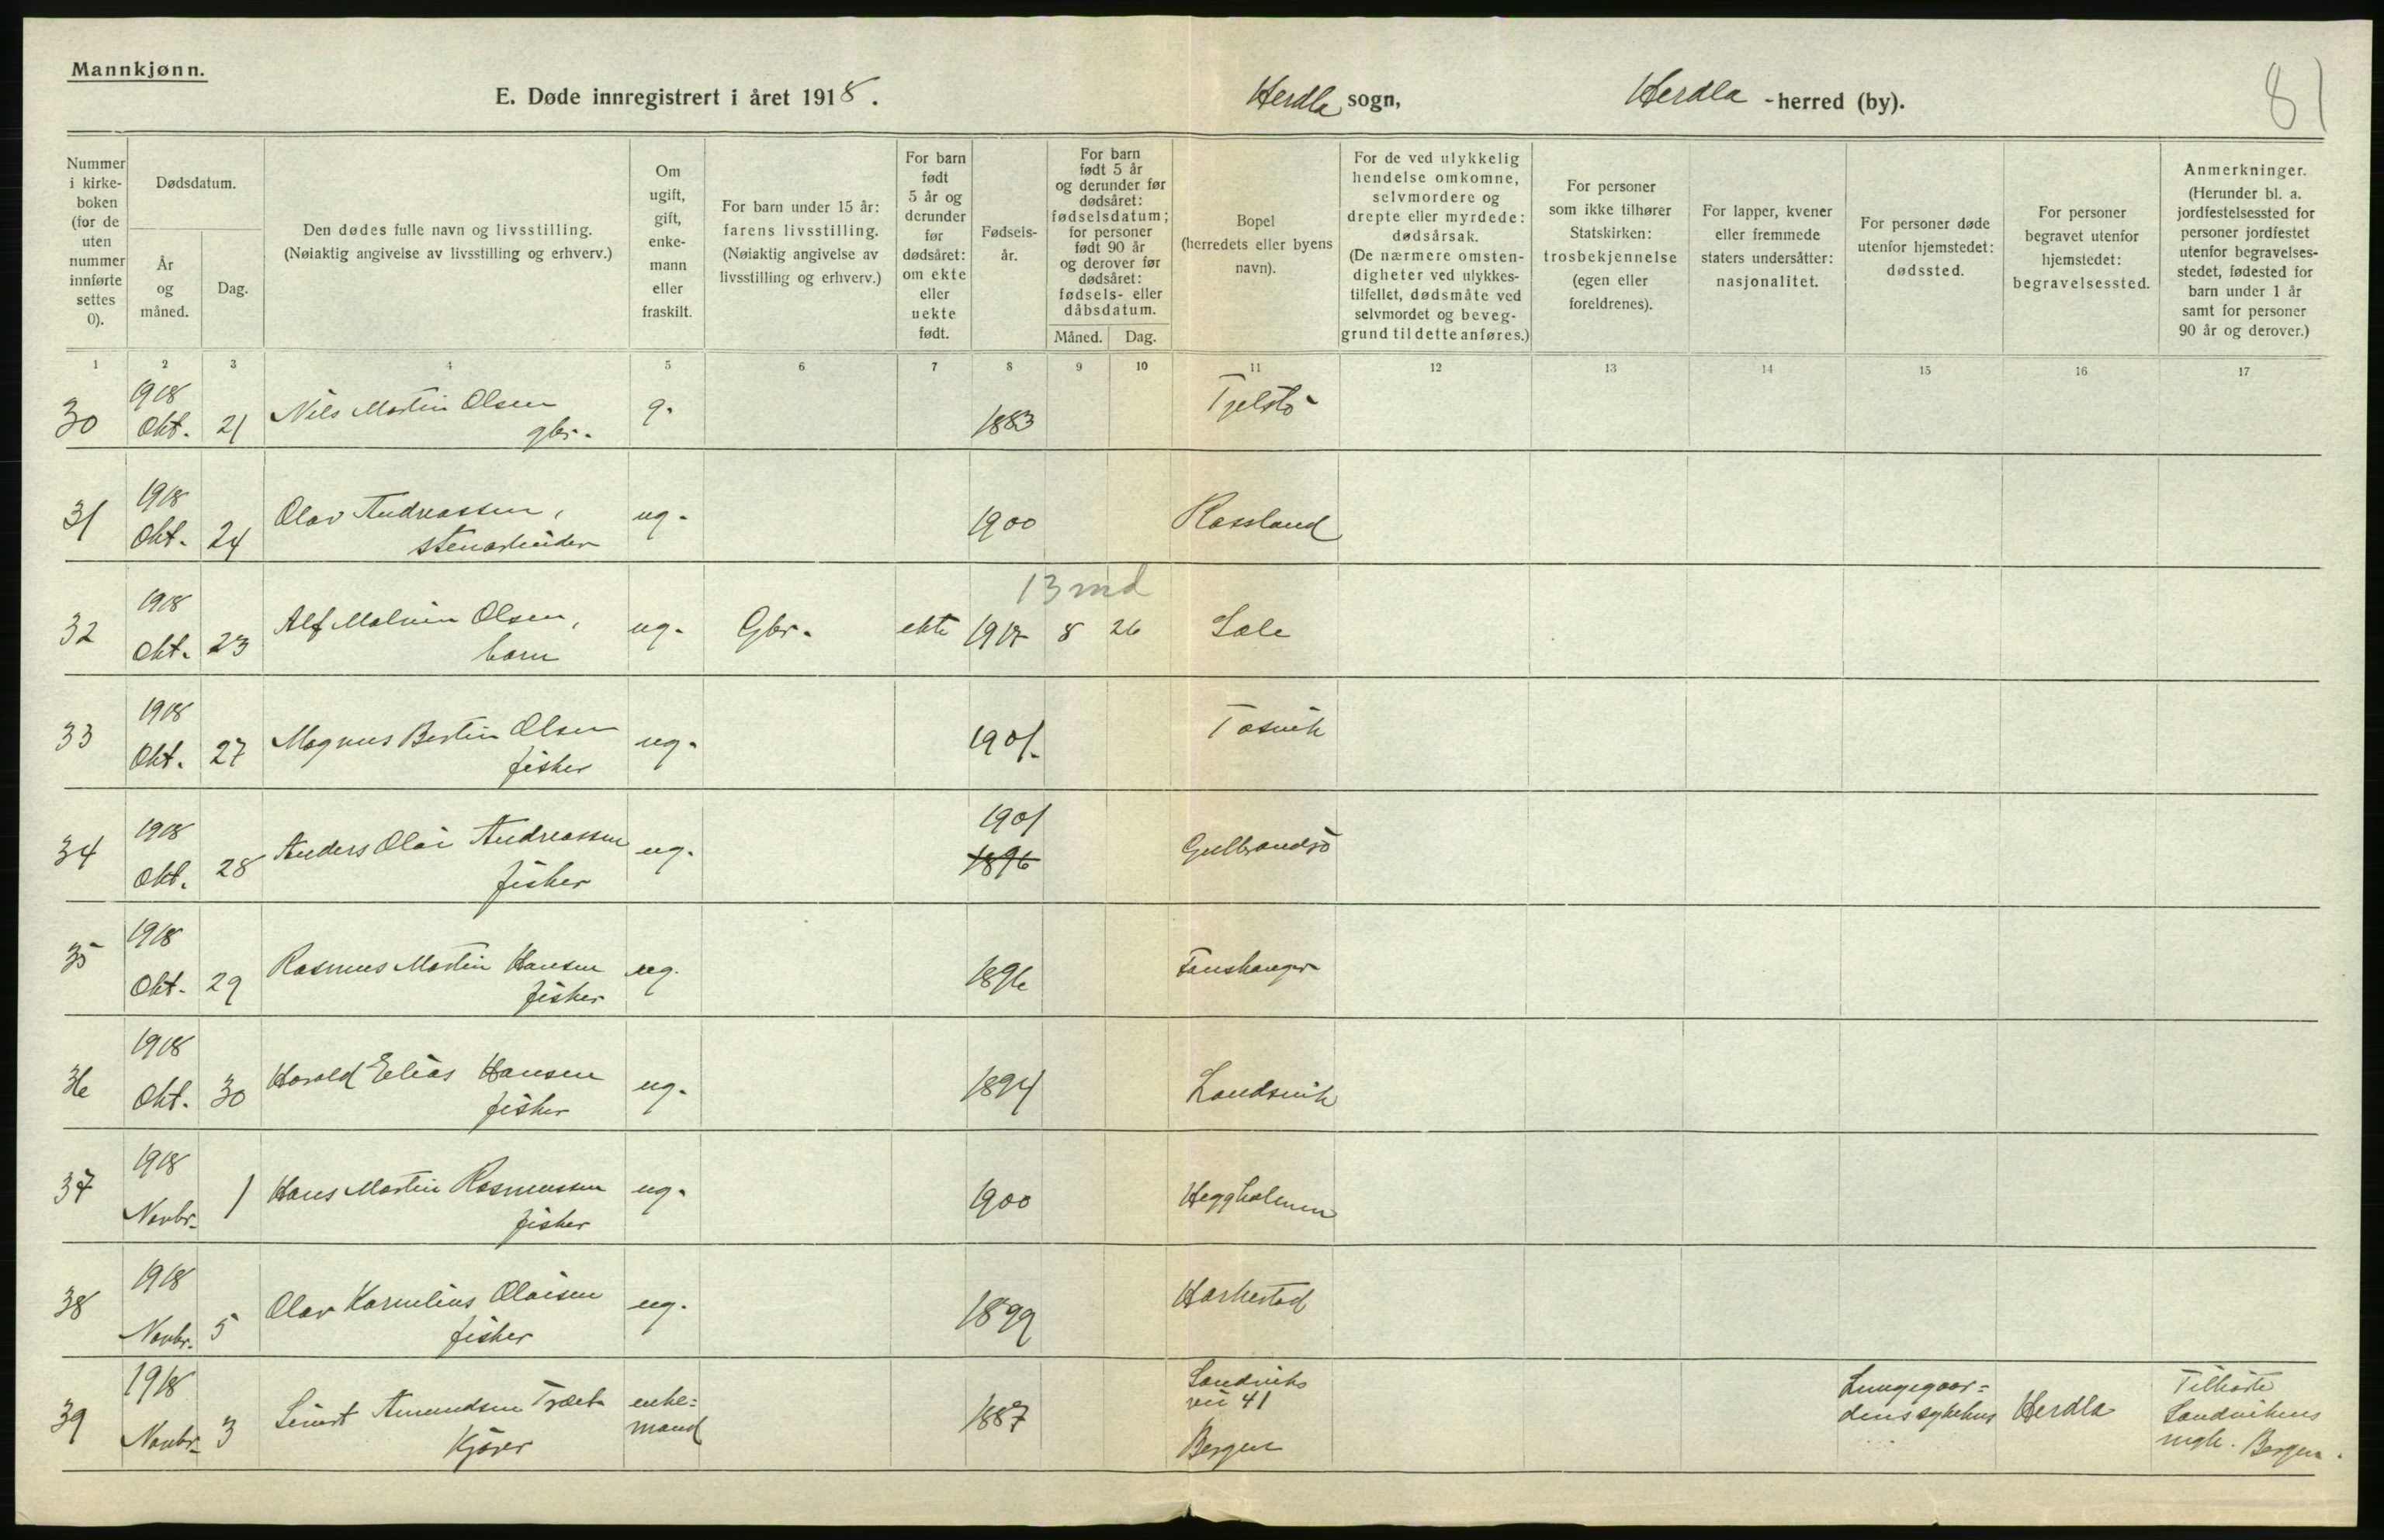 Mannkjønn.
E. Døde innregistrert i året 1918.
Herdla sogn,
Herdla -herred (by).
81
Nummer i kirke- boken (for de uten nummer innførte settes 0).
Dødsdatum.
År og måned.
Dag.
Den dødes fulle navn og livsstilling.
(Nøiaktig angivelse av livsstilling og erhverv.)
Om ugift, gift, enke- mann eller fraskilt.
For barn under 15 år: farens livsstilling.
(Nøiaktig angivelse av livsstilling og erhverv.)
For barn født 5 år og derunder før dødsåret: om ekte eller uekte født.
Fødsels- år.
For barn født 5 år og derunder før dødsåret: fødselsdatum; for personer født 90 år og derover før dødsåret: fødsels- eller dåbsdatum.
Måned.
Dag.
Bopel (herredets eller byens navn).
For de ved ulykkelig hendelse omkomne, selvmordere og drepte eller myrdede: dødsårsak.
(De nærmere omsten- digheter ved ulykkes- tilfellet, dødsmåte ved selvmordet og beveg- grund til dette anføres.)
For personer som ikke tilhører Statskirken: trosbekjennelse (egen eller foreldrenes).
For lapper, kvener eller fremmede staters undersåtter: nasjonalitet.
For personer døde utenfor hjemstedet: dødssted.
For personer begravet utenfor hjemstedet: begravelsessted.
Anmerkninger.
(Herunder bl. a. jordfestelsessted for personer jordfestet utenfor begravelses- stedet, fødested for barn under 1 år samt for personer 90 år og derover.)
1 2 3 4 5 6 7 8 9 10 11 12 13 14 15 16 17
30 1918 Okt. 21 Nils Martin Olsen gbr. g. 1883 Tjeldstø
31 1918 Okt. 24 Olav Andreassen, stenarbeider ug. 1900 Rossland
13 md
32 1918 Okt. 23 Alf Malvin Olsen, barn ug. Gbr. ekte 1917 8 26 Sæle
33 1918 Okt. 27 Magnus Bertin Olsen fisker ug. 1901.
34 1918 Okt. 28 Anders Olai Andreassen fisker ug. 1901 1896 Gulbrandsö
35 1918 Okt. 29 Rasmus Martin Hansen fisker ug. 1896
36 1918 Okt. 30 Harald Elias Hansen fisker ug. 1894 Landsvik
37 1918 Novbr. 1 Hans Martin Rasmussen fisker ug. 1900 Heggholmen
38 1918 Novbr. 5 Olav Kornelius Olaisen fisker ug. 1899
39 1918 Novbr. 3 Amundsen kjører enke= mand 1887 Sandviks vei 41 Bergen Lungegaar= dens sykehus Herdla Tilhørte Sandvikens mgh. Bergen.